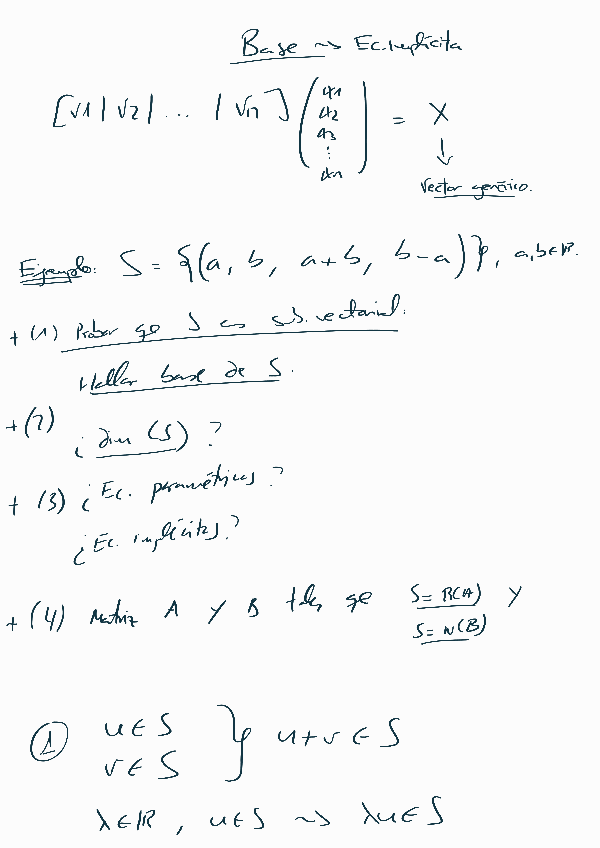 Base ⇝ Ec. implícita
[v1 | v2 | ... | vn] (α1 α2 α3 ⋮ αn) = X
↓
Vector genérico.
Ejemplo: S = {(a, b, a+b, b-a)}, a,b∈IR.
+ (1) Probar qe S es sub. vectorial.
Hallar base de S.
+ (2) ¿dim (S)?
+ (3) ¿Ec. paramétricas?
¿Ec. implícitas?
+ (4) Matriz A y B tales qe S=R(A) y
S=N(B)
① u∈S
v∈S } u+v∈S
λ∈IR, u∈S ⇝ λu∈S